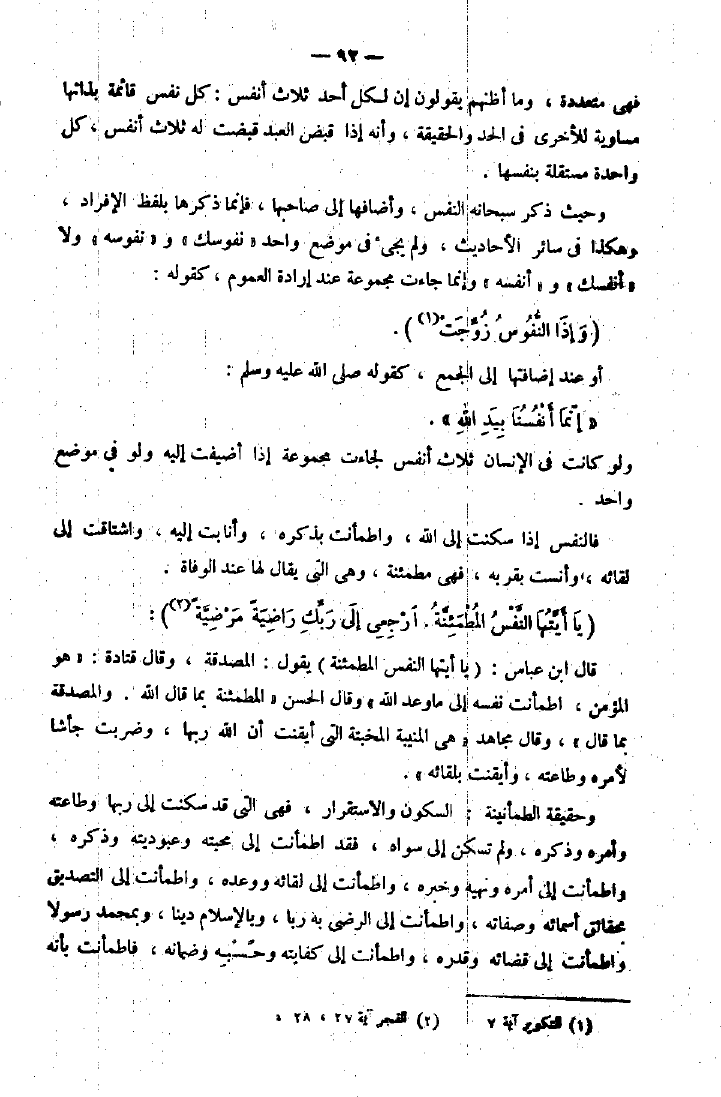 — ٩٢ —
فهى متعددة ، وما أظنهم يقولون إن لكل أحد ثلاث أنفس : كل نفس قائمة بذاتها
مساوية للأخرى فى الحد والحقيقة ، وأنه إذا قبض العبد قبضت له ثلاث أنفس ، كل
واحدة مستقلة بنفسها .
وحيث ذكر سبحانه النفس ، وأضافها إلى صاحبها ، فإنما ذكرها بلفظ الإفراد ،
وهكذا فى سائر الأحاديث ، ولم يجىء فى موضع واحد « نفوسك » و « نفوسه » ولا
« أنفسك » و « أنفسه » وإنما جاءت مجموعة عند إرادة العموم ، كقوله :
( وَإِذَا النُّفُوسُ زُوِّجَتْ (١) ) .
أو عند إضافتها إلى الجمع ، كقوله صلى الله عليه وسلم :
« إِنَّمَا أَنْفُسُنَا بِيَدِ اللهِ » .
ولو كانت فى الإنسان ثلاث أنفس لجاءت مجموعة إذا أضيفت إليه ولو فى موضع
واحد .
فالنفس إذا سكنت إلى الله ، واطمأنت بذكره ، وأنابت إليه ، واشتاقت إلى
لقائه ، وأنست بقربه ، فهى مطمئنة ، وهى التى يقال لها عند الوفاة .
( يَا أَيَّتُهَا النَّفْسُ الْمُطْمَئِنَّةُ . ارْجِعِى إِلَى رَبِّكِ رَاضِيَةً مَرْضِيَّةً (٢) ) :
قال ابن عباس : ( يا أيتها النفس المطمئنة ) يقول : المصدقة ، وقال قتادة : « هو
المؤمن ، اطمأنت نفسه إلى ما وعد الله » وقال الحسن « المطمئنة بما قال الله . والمصدقة
بما قال » ، وقال مجاهد « هى المنيبة المخبتة التى أيقنت أن الله ربها ، وضربت جأشا
لأمره وطاعته ، وأيقنت بلقائه » .
وحقيقة الطمأنينة : السكون والاستقرار ، فهى التى قد سكنت إلى ربها وطاعته
وأمره وذكره ، ولم تسكن إلى سواه ، فقد اطمأنت إلى محبته وعبوديته وذكره ،
واطمأنت إلى أمره ونهيه وخبره ، واطمأنت إلى لقائه ووعده ، واطمأنت إلى التصديق
بحقائق أسمائه وصفاته ، واطمأنت إلى الرضى به ربا ، وبالإسلام دينا ، وبمحمد رسولا
واطمأنت إلى قضائه وقدره ، واطمأنت إلى كفايته وحَسْبِه وضمانه ، فاطمأنت بأنه
(١) التكوير آية ٧ (٢) الفجر آية ٢٧ ، ٢٨